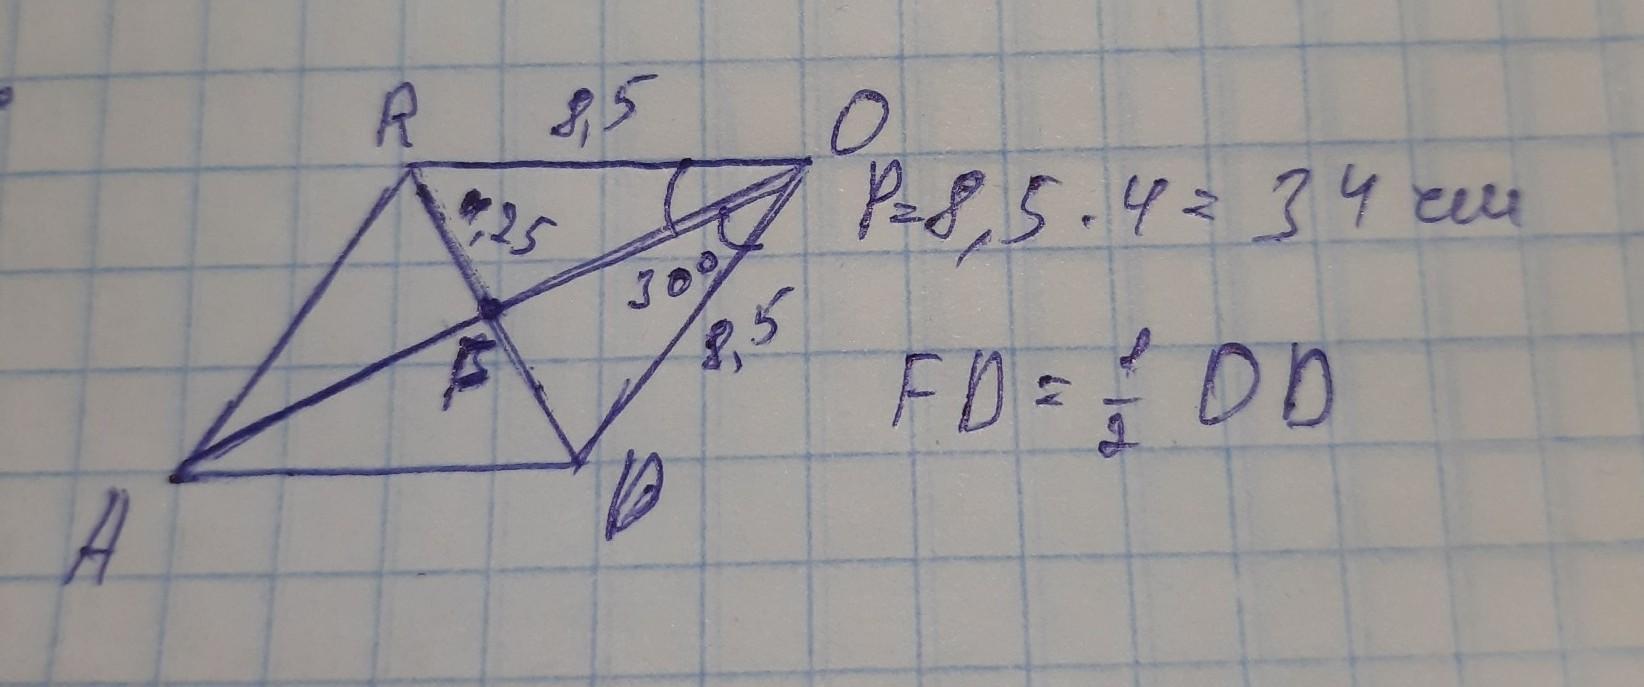 R 8,5 O
P=8,5·4=34 см
,25
30°
8,5
F
FD=1/2 OD
A D